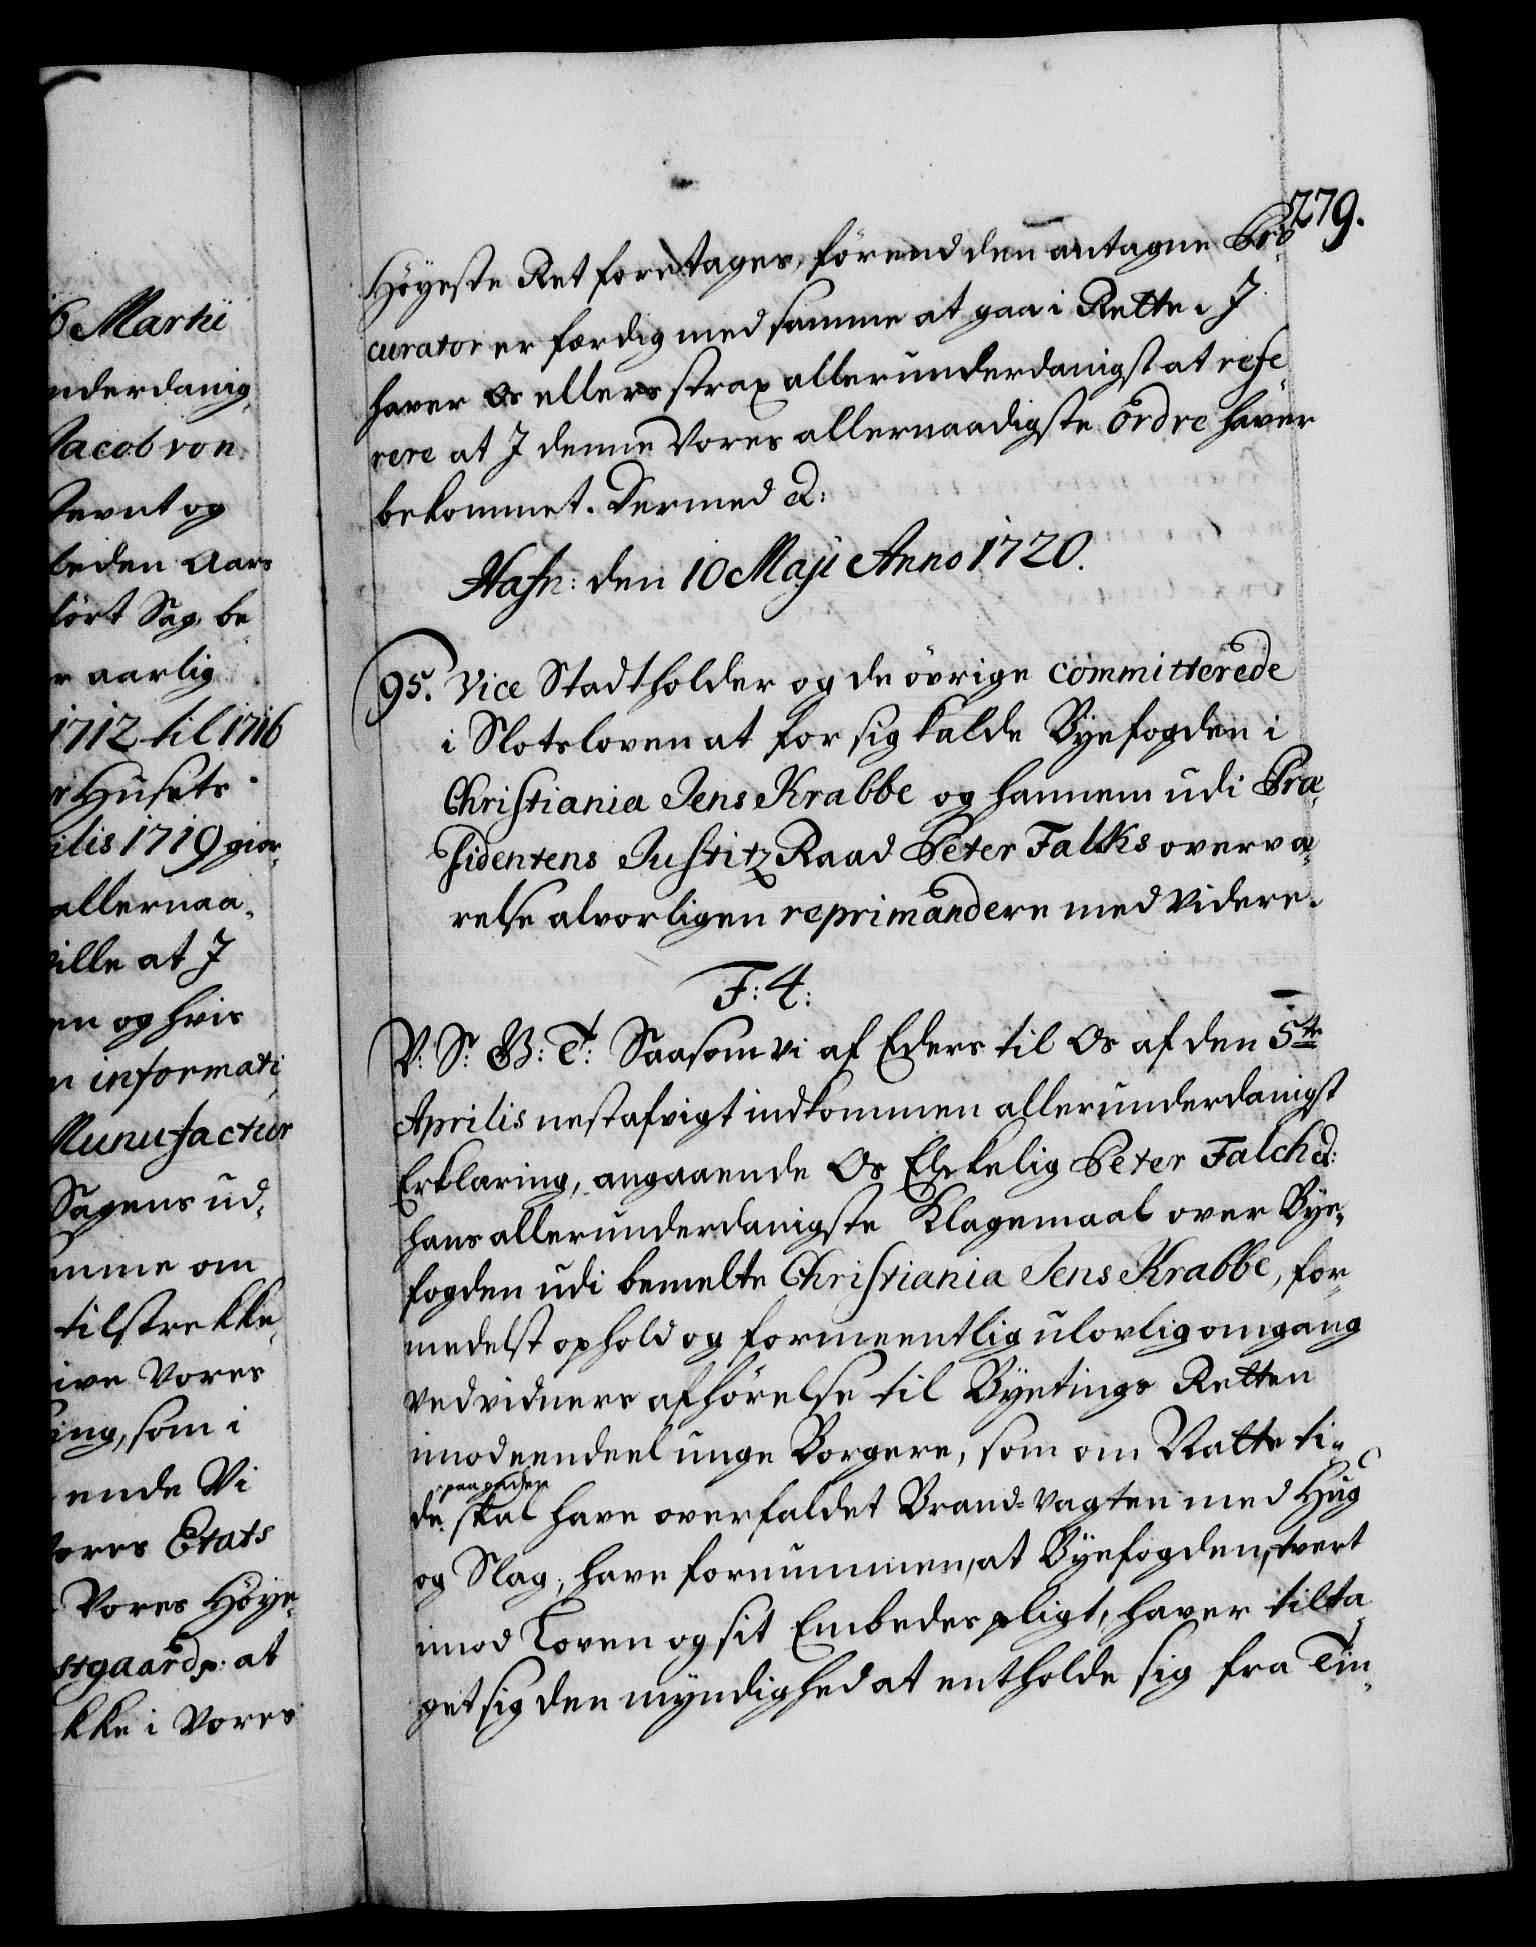 279.
Höyeste Ret foretages, förend den antagne Pro¬
curator er færdig med samme at gaa i Rette. I
haver Os ellers strax allerunderdanigst at refe¬
rere at I denne Vores allernaadigste Ordre haver
bekommet. Dermed &:
Hafn: den 10 Maji Anno 1720.
95. Vice Stadtholder og de övrige Committerede
i Slotsloven at for sig kalde Byefogden i
Christiania Jens Krabbe og hannem udi Præ¬
sidentens Justitz Raad Peter Falks overvæ¬
relse alvorligen reprimandere med videre.
F: 4:
V: S: G: T: Saasom Vi af Eders til Os af den 5te
Aprilis nestafvigt indkommen allerunderdanigst
Erklæring, angaaende Os Elskelig Peter Falch &:
hans allerunderdanigste Klagemaal over Bye¬
fogden udi bemelte Christiania Jens Krabbe, for¬
medelst ophold og formeentlig ulovlig omgang
ved vidners afhörelse til Byetings Retten
imod eendeel unge Borgere, som om Natte ti¬
de paa gaden skal have overfaldet Brand-vagten med Hug
og Slag, have fornummen, at Byefogden, tvert
imod Loven og sit Embedes pligt, haver tilta¬
get sig den myndighed at entholde sig fra Tin¬
6 Martii
nderdanig¬
Jacob von
ævnt og
leden Aars
fört Sag, be
r aarlig
1712 til 1716
r Husets
ilis 1719 gior¬
allernaa¬
ville at I
en og hvis
n informati
Munufactur
Sagens ud¬
mme om
tilstrekke¬
ive Vores
ing, som i
ende Vi
Vores Etats
Vores Höye¬
stgaard p: at
kke i Vores